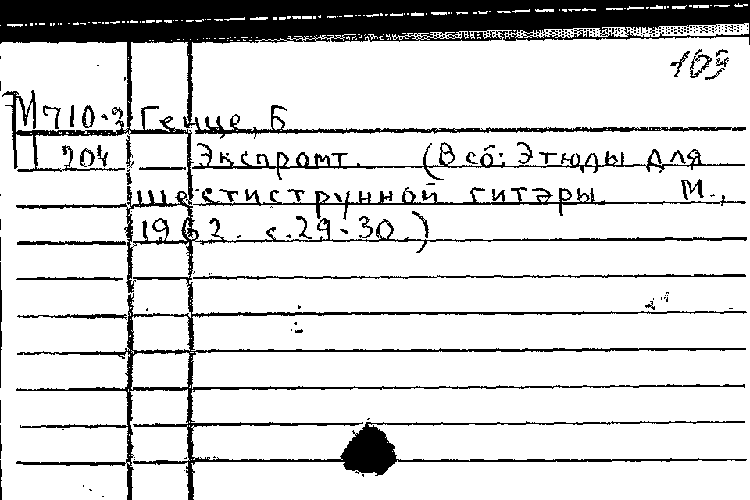 109
М710-3 Генце, Б
204 Экспромт. (В сб: Этюды для
шестиструнной гитары. М.,
1962. с.29-30.)